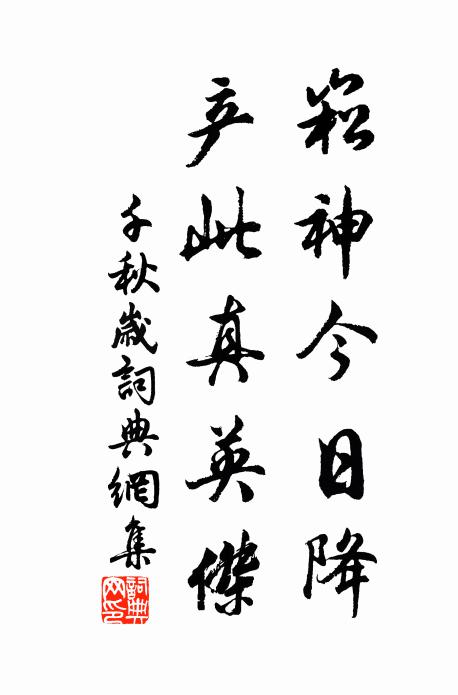 崧神今日降
产此真英傑
千秋歲詞典網集
詞典网印